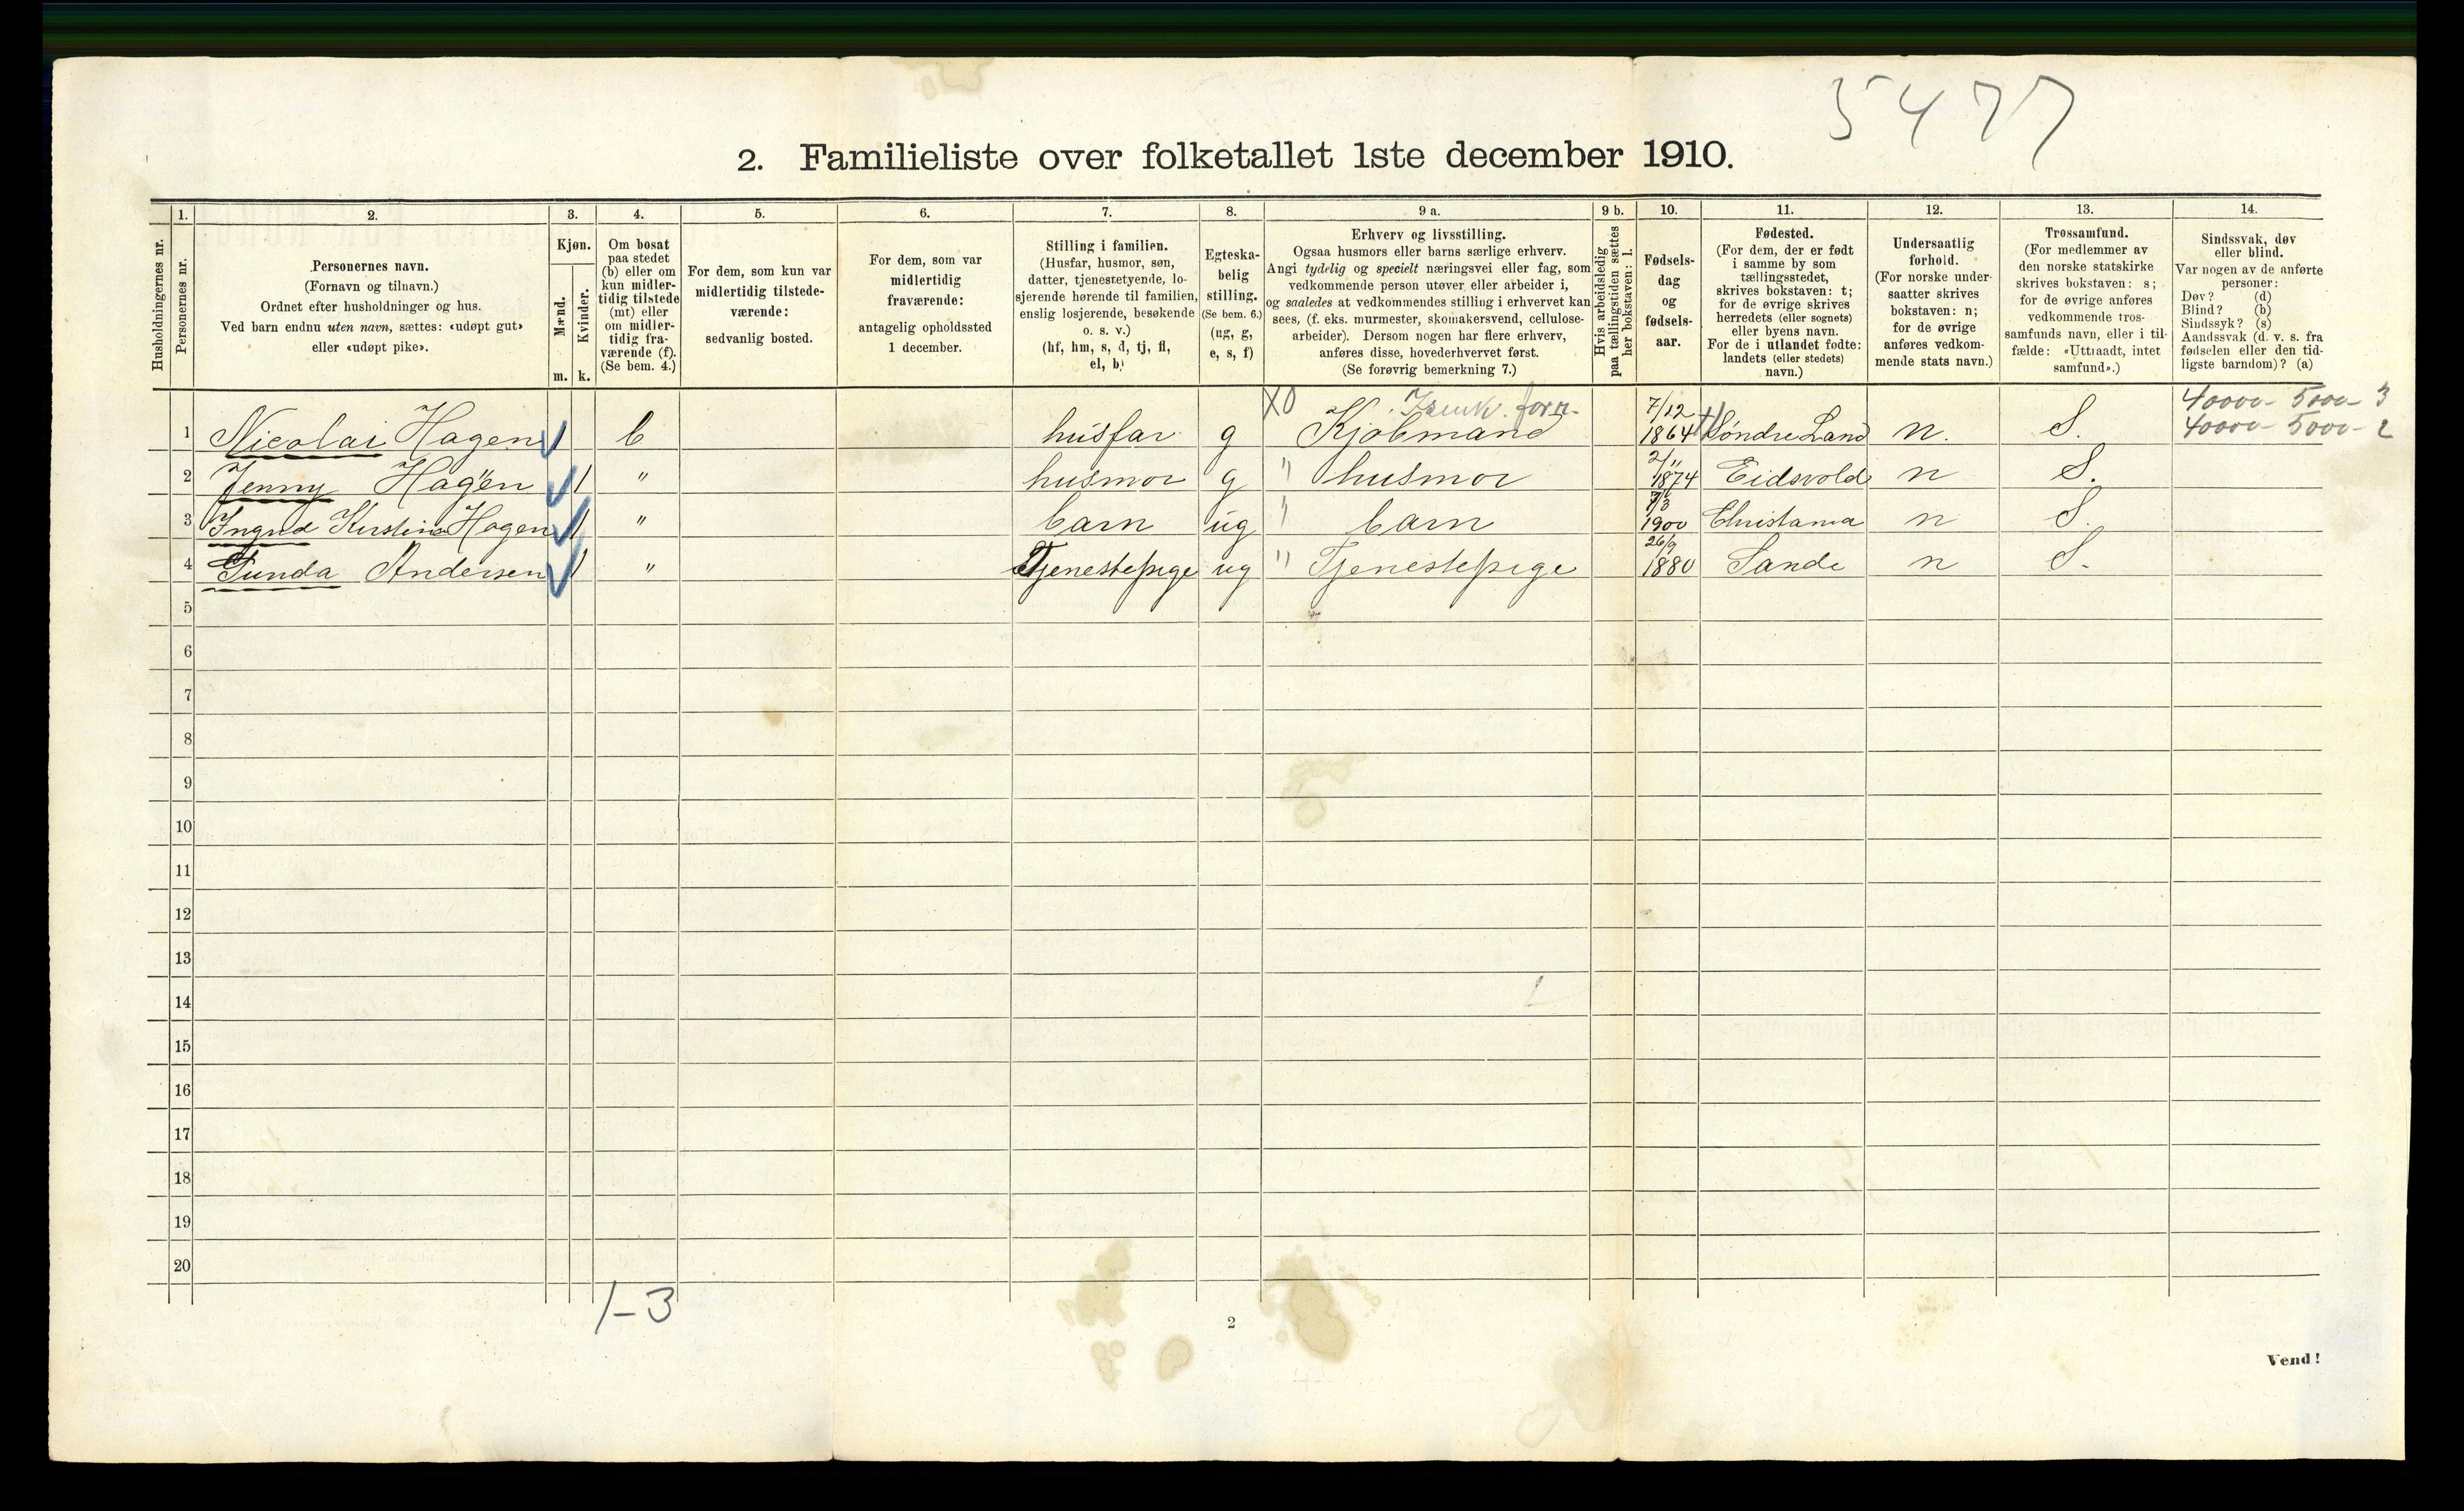 5477
2. Familieliste over folketallet 1ste december 1910.
Husholdningernes nr.
1. Personernes nr.
2. Personernes navn.
(Fornavn og tilnavn.)
Ordnet efter husholdninger og hus.
Ved barn endnu uten navn, sættes: «udøpt gut»
eller «udøpt pike».
3. Kjøn.
Mænd. m.
Kvinder. k.
4. Om bosat
paa stedet
(b) eller om
kun midler-
tidig tilstede
(mt) eller
om midler-
tidig fra-
værende (f).
(Se bem. 4.)
5. For dem, som kun var
midlertidig tilstede-
værende:
sedvanlig bosted.
6. For dem, som var
midlertidig
fraværende:
antagelig opholdssted
1 december.
7. Stilling i familien.
(Husfar, husmor, søn,
datter, tjenestetyende, lo-
sjerende hørende til familien,
enslig losjerende, besøkende
o. s. v.)
(hf, hm, s, d, tj, fl,
el, b)
8. Egteska-
belig
stilling.
(Se bem. 6.)
(ug, g,
e, s, f)
9 a. Erhverv og livsstilling.
Ogsaa husmors eller barns særlige erhverv.
Angi tydelig og specielt næringsvei eller fag, som
vedkommende person utøver eller arbeider i,
og saaledes at vedkommendes stilling i erhvervet kan
sees, (f. eks. murmester, skomakersvend, cellulose-
arbeider). Dersom nogen har flere erhverv,
anføres disse, hovederhvervet først.
(Se forøvrig bemerkning 7.)
9 b. Hvis arbeidsledig
paa tællingstiden sættes
her bokstaven: l.
10. Fødsels-
dag
og
fødsels-
aar.
11. Fødested.
(For dem, der er født
i samme by som
tællingsstedet,
skrives bokstaven: t;
for de øvrige skrives
herredets (eller sognets)
eller byens navn.
For de i utlandet fødte:
landets (eller stedets)
navn.)
12. Undersaatlig
forhold.
(For norske under-
saatter skrives
bokstaven: n;
for de øvrige
anføres vedkom-
mende stats navn.)
13. Trossamfund.
(For medlemmer av
den norske statskirke
skrives bokstaven: s;
for de øvrige anføres
vedkommende tros-
samfunds navn, eller i til-
fælde: «Uttraadt, intet
samfund».)
14. Sindssvak, døv
eller blind.
Var nogen av de anførte
personer:
Døv? (d)
Blind? (b)
Sindssyk? (s)
Aandssvak (d. v. s. fra
fødselen eller den tid-
ligste barndom)? (a)
X0 forr. 7/12 40000 - 5000 - 3
1 Nicolai Hagen 1 b husfar g Kjøbmand 1864 Søndre Land n. S. 40000 - 5000 - 2
2/11
2 Jenny Hagen 1 " husmor g " husmor 1874 Eidsvold n S.
3 Ingrid Kirstine Hagen 1 " barn ug " barn 1900 Christania n S.
26/9
4 Gunda Andersen 1 " Tjenestepige ug " Tjenestepige 1880 Sande n S.
5
6
7
8
9
10
11
12
13
14
15
16
17
18
19
20
1-3
2
Vend!